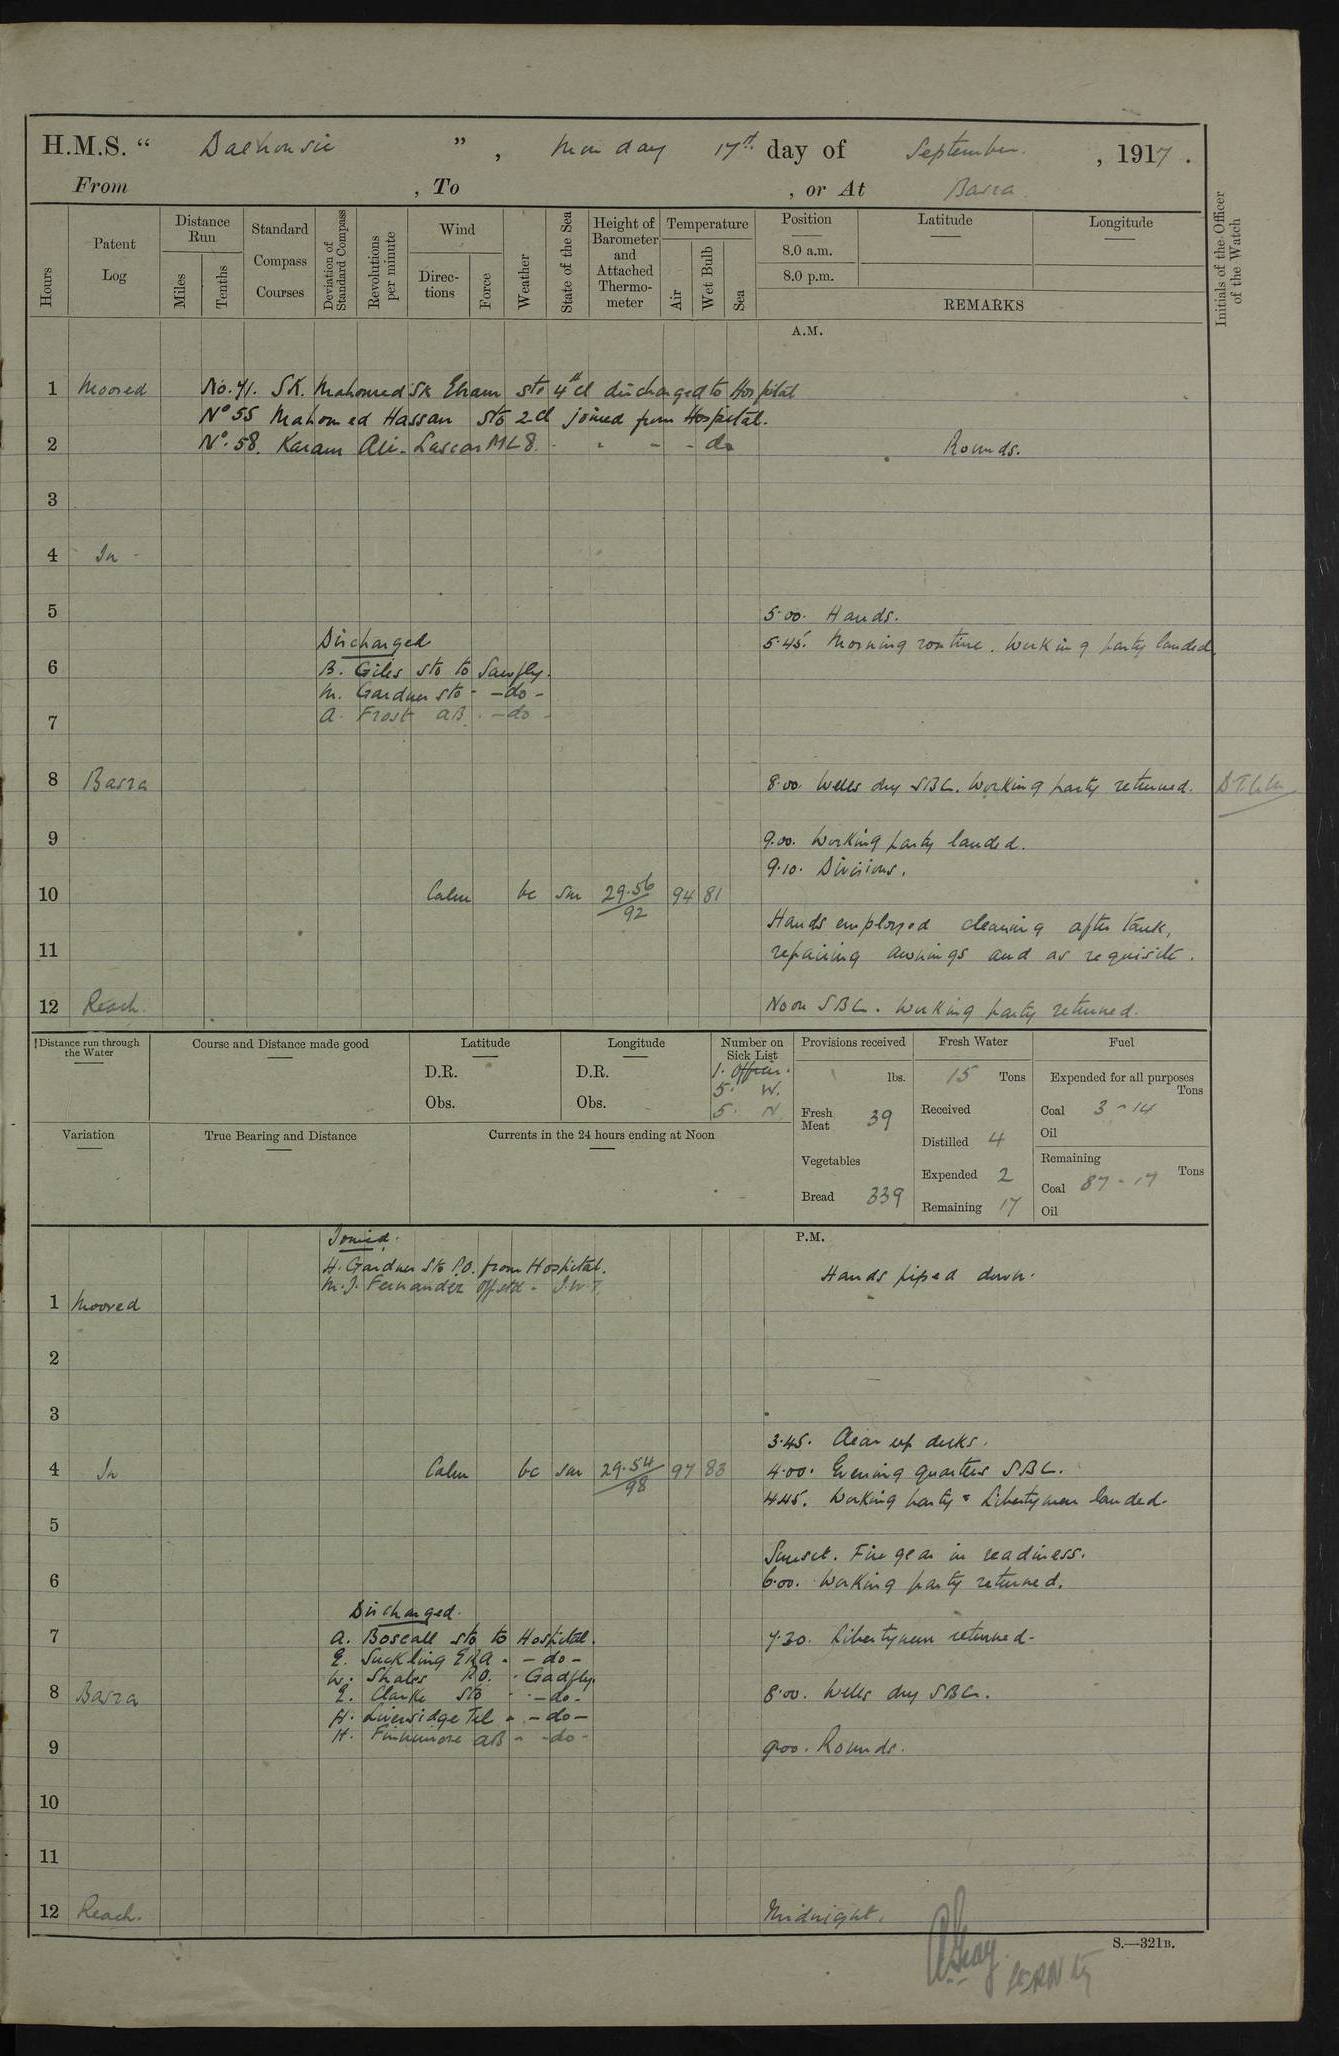 H.M.S. “ Dalhousie ” , Monday 17th day of September , 1917 .
From , To , or At Basra
Hours
Patent Log
Distance Run
Miles
Tenths
Standard Compass Courses
Deviation of Standard Compass
Revolutions per minute
Wind
Directions
Force
Weather
State of the Sea
Height of Barometer and Attached Thermometer
Temperature
Air
Wet Bulb
Sea
Position
8.0 a.m.
8.0 p.m.
Latitude
Longitude
REMARKS
Initials of the Officer of the Watch
A.M.
1 Moored No. 71. SK. Mahomed SK Eham Sto 4th cl discharged to Hospital
No 55 Mahomed Hassan Sto 2 cl joined from Hospital.
2 No. 58. Karam Ali - Lascar ML8. " - - do Rounds.
3
4 In -
5 5.00. Hands.
Discharged 5.45. Morning routine. Working party landed.
6 B. Giles Sto to Sawfly.
M. Gardner Sto - - do -
7 A. Frost AB. - do -
8 Basra 8.00. Wells dry SBC. Working party returned.
9 9.00. Working party landed.
9.10. Divisions.
10 Calm bc sm 29.56/92 94 81
Hands employed cleaning after tank,
11 repairing awnings and as requisite.
12 Reach. Noon SBC. Working party returned.
Distance run through the Water
Course and Distance made good
Latitude
D.R.
Obs.
Longitude
D.R.
Obs.
Number on Sick List
1. Officer.
5. W.
5. N
Provisions received
lbs.
Fresh Meat 39
Vegetables
Bread 339
Fresh Water
15 Tons
Received
Distilled 4
Expended 2
Remaining 17
Fuel
Expended for all purposes
Tons
Coal 3 - 14
Oil
Remaining
Tons
Coal 87 - 17
Oil
Variation
True Bearing and Distance
Currents in the 24 hours ending at Noon
P.M.
Joined.
H. Gardner Sto P.O. from Hospital. Hands piped down.
M. J. Fernandez Off std - I.W.T.
1 Moored
2
3
3.45. Clear up decks.
4 In Calm bc sm 29.54/98 97 83 4.00. Evening quarters SBC.
4.45. Working party & Libertymen landed.
5
Sunset. Fire gear in readiness.
6 6.00. Working party returned.
Discharged.
7 A. Boscall Sto to Hospital. 7.30. Libertymen returned.
E. Suckling ERA - - do -
W. Shales P.O. - Gadfly.
8 Basra E. Clarke Sto - - do - 8.00. Wells dry SBC.
H. Liversidge Tel - - do -
H. Finnimore AB - - do -
9 9.00. Rounds.
10
11
12 Reach. Midnight.
S.—321B.